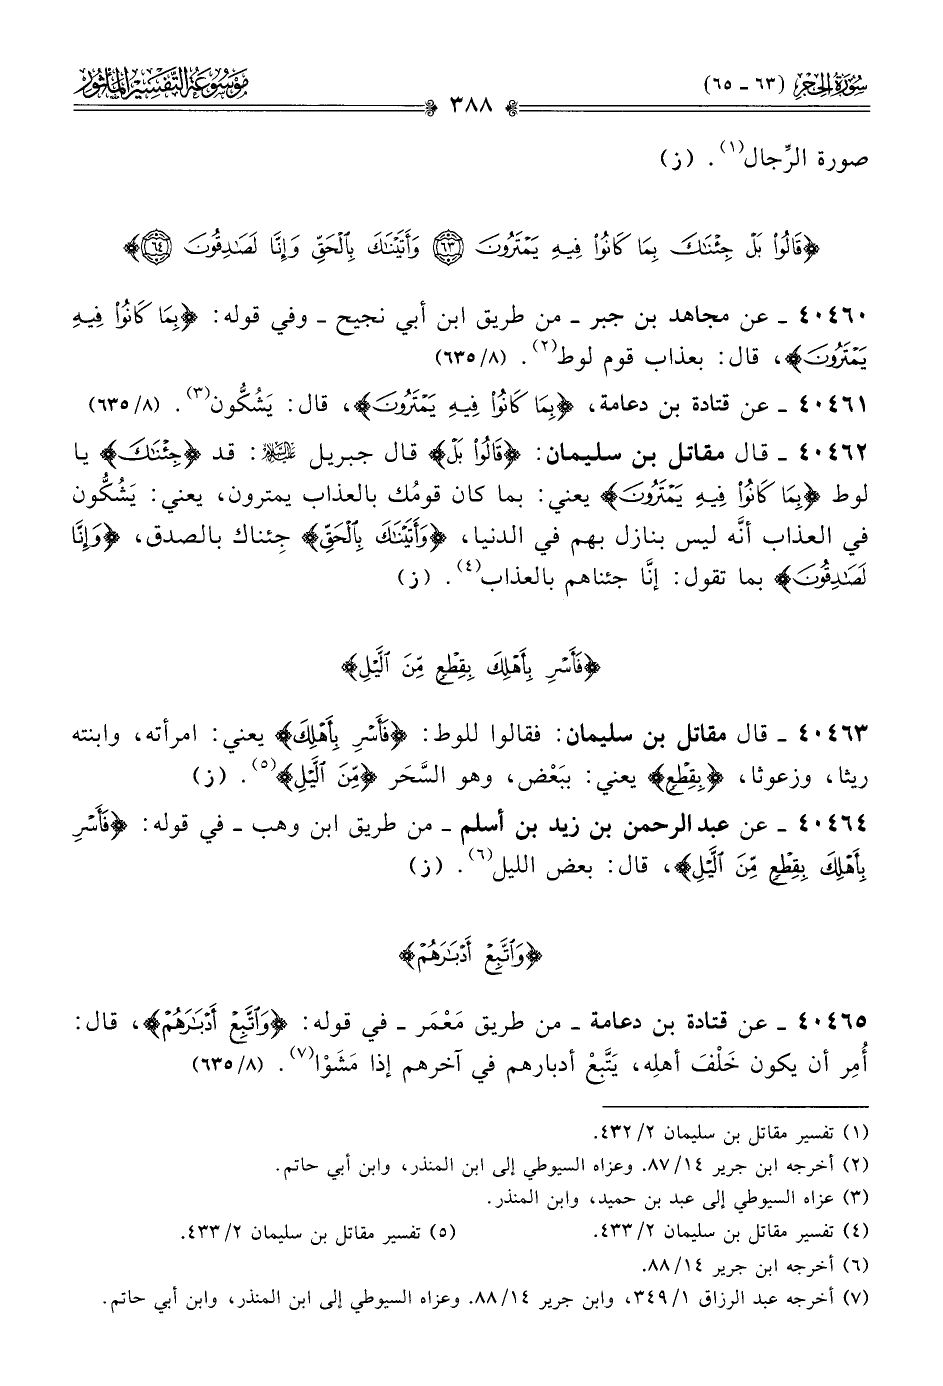 سُورَةُ الحِجْرِ (٦٣ - ٦٥)
٣٨٨
مَوْسُوعَةُ التَّفْسِيرِ المَأْثُور
صورة الرِّجال(١). (ز)
﴿قَالُوا۟ بَلْ جِئْنَـٰكَ بِمَا كَانُوا۟ فِيهِ يَمْتَرُونَ ٦٣ وَأَتَيْنَـٰكَ بِٱلْحَقِّ وَإِنَّا لَصَـٰدِقُونَ ٦٤﴾
٤٠٤٦٠ ـ عن مجاهد بن جبر ـ من طريق ابن أبي نجيح ـ وفي قوله: ﴿بِمَا كَانُوا۟ فِيهِ
يَمْتَرُونَ﴾، قال: بعذاب قوم لوط(٢). (٨/ ٦٣٥)
٤٠٤٦١ ـ عن قتادة بن دعامة، ﴿بِمَا كَانُوا۟ فِيهِ يَمْتَرُونَ﴾، قال: يَشُكُّون(٣). (٨/ ٦٣٥)
٤٠٤٦٢ ـ قال مقاتل بن سليمان: ﴿قَالُوا۟ بَلْ﴾ قال جبريل عليه السلام: قد ﴿جِئْنَـٰكَ﴾ يا
لوط ﴿بِمَا كَانُوا۟ فِيهِ يَمْتَرُونَ﴾ يعني: بما كان قومُك بالعذاب يمترون، يعني: يَشُكُّون
في العذاب أنَّه ليس بنازل بهم في الدنيا، ﴿وَأَتَيْنَـٰكَ بِٱلْحَقِّ﴾ جِئناك بالصدق، ﴿وَإِنَّا
لَصَـٰدِقُونَ﴾ بما تقول: إنَّا جئناهم بالعذاب(٤). (ز)
﴿فَأَسْرِ بِأَهْلِكَ بِقِطْعٍ مِّنَ ٱلَّيْلِ﴾
٤٠٤٦٣ ـ قال مقاتل بن سليمان: فقالوا للوط: ﴿فَأَسْرِ بِأَهْلِكَ﴾ يعني: امرأته، وابنته
ريثا، وزعوثا، ﴿بِقِطْعٍ﴾ يعني: ببَعْض، وهو السَّحَر ﴿مِّنَ ٱلَّيْلِ﴾(٥). (ز)
٤٠٤٦٤ ـ عن عبدالرحمن بن زيد بن أسلم ـ من طريق ابن وهب ـ في قوله: ﴿فَأَسْرِ
بِأَهْلِكَ بِقِطْعٍ مِّنَ ٱلَّيْلِ﴾، قال: بعض الليل(٦). (ز)
﴿وَٱتَّبِعْ أَدْبَـٰرَهُمْ﴾
٤٠٤٦٥ ـ عن قتادة بن دعامة ـ من طريق مَعْمَر ـ في قوله: ﴿وَٱتَّبِعْ أَدْبَـٰرَهُمْ﴾، قال:
أُمِر أن يكون خَلْفَ أهلِه، يَتَّبِعْ أدبارهم في آخرهم إذا مَشَوْا(٧). (٨/ ٦٣٥)
(١) تفسير مقاتل بن سليمان ٢/ ٤٣٢.
(٢) أخرجه ابن جرير ١٤/ ٨٧. وعزاه السيوطي إلى ابن المنذر، وابن أبي حاتم.
(٣) عزاه السيوطي إلى عبد بن حميد، وابن المنذر.
(٤) تفسير مقاتل بن سليمان ٢/ ٤٣٣. (٥) تفسير مقاتل بن سليمان ٢/ ٤٣٣.
(٦) أخرجه ابن جرير ١٤/ ٨٨.
(٧) أخرجه عبد الرزاق ١/ ٣٤٩، وابن جرير ١٤/ ٨٨. وعزاه السيوطي إلى ابن المنذر، وابن أبي حاتم.